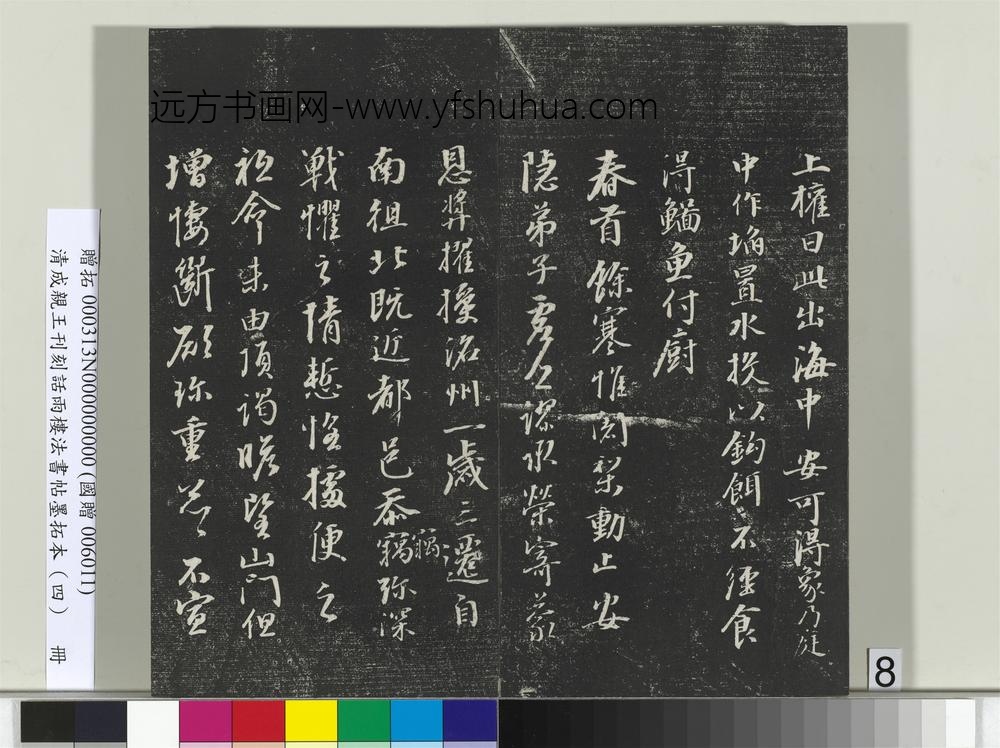 远方书画网-www.yfshuhua.com
上權曰此出海中安可得象乃於庭
中作埳置水投以鈎餌不經食
得鯔魚付廚
春首餘寒惟闍梨動止安
隱弟子虛乏謬承榮寄蒙
恩獎擢授洛州一歲三遷自
南徂北既近都邑忝竊弥深
竊
戰懼之情慙惶據便之
袛今未由頂謁瞻望山門但
增悽斷願珍重忩忩不宣
贈拓 000313N000000000 (國贈 006011)
清成親王刊刻話雨樓法書帖墨拓本（四） 冊
8